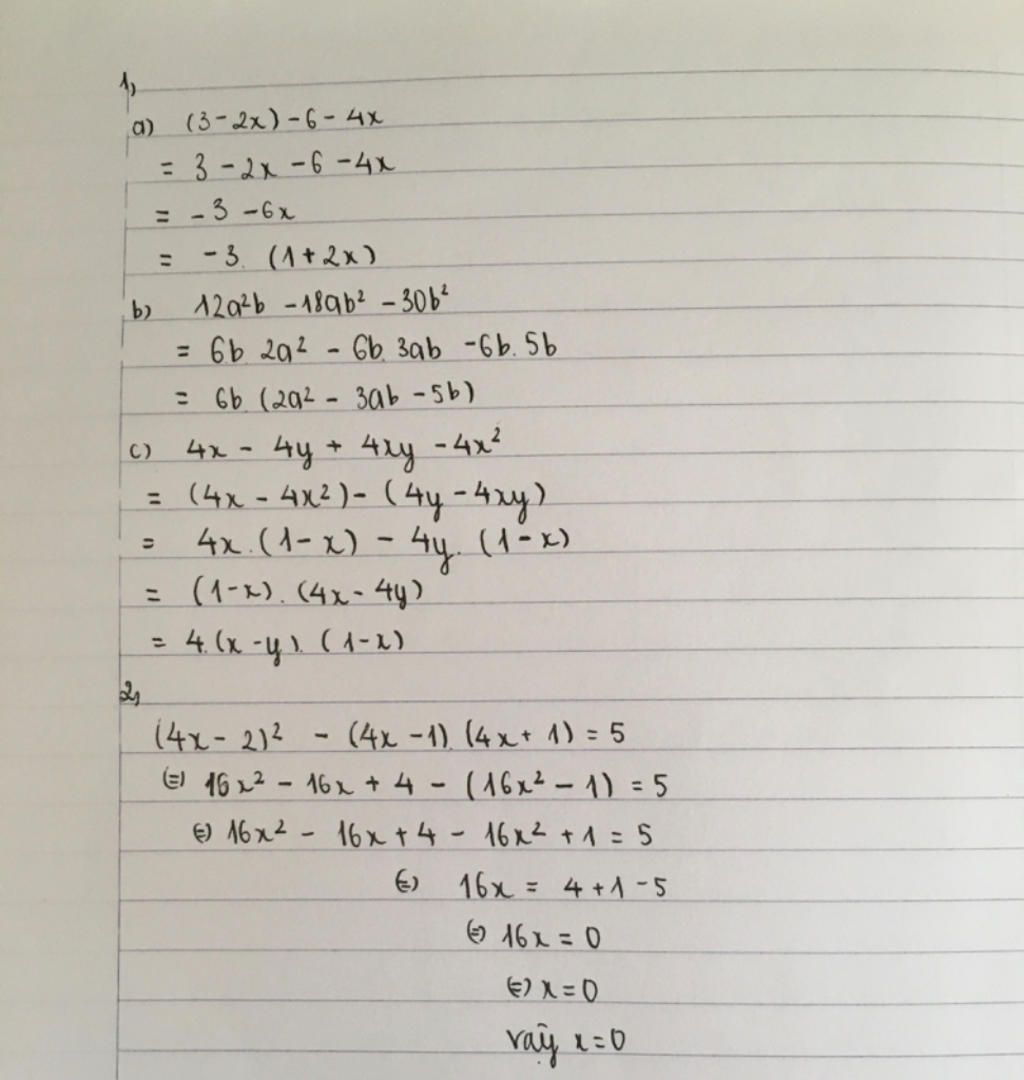 1,
a) (3-2x)-6-4x
= 3-2x-6-4x
= -3-6x
= -3.(1+2x)
b) 12a²b -18ab² -30b²
= 6b.2a² - 6b.3ab -6b.5b
= 6b.(2a² - 3ab -5b)
c) 4x - 4y + 4xy -4x²
= (4x - 4x²) - (4y -4xy)
= 4x.(1-x) - 4y.(1-x)
= (1-x).(4x-4y)
= 4.(x-y).(1-x)
2,
(4x-2)² - (4x-1).(4x+1) = 5
(=) 16x² - 16x + 4 - (16x² - 1) = 5
(=) 16x² - 16x + 4 - 16x² + 1 = 5
(=) 16x = 4+1-5
(=) 16x = 0
(=) x = 0
vậy x=0